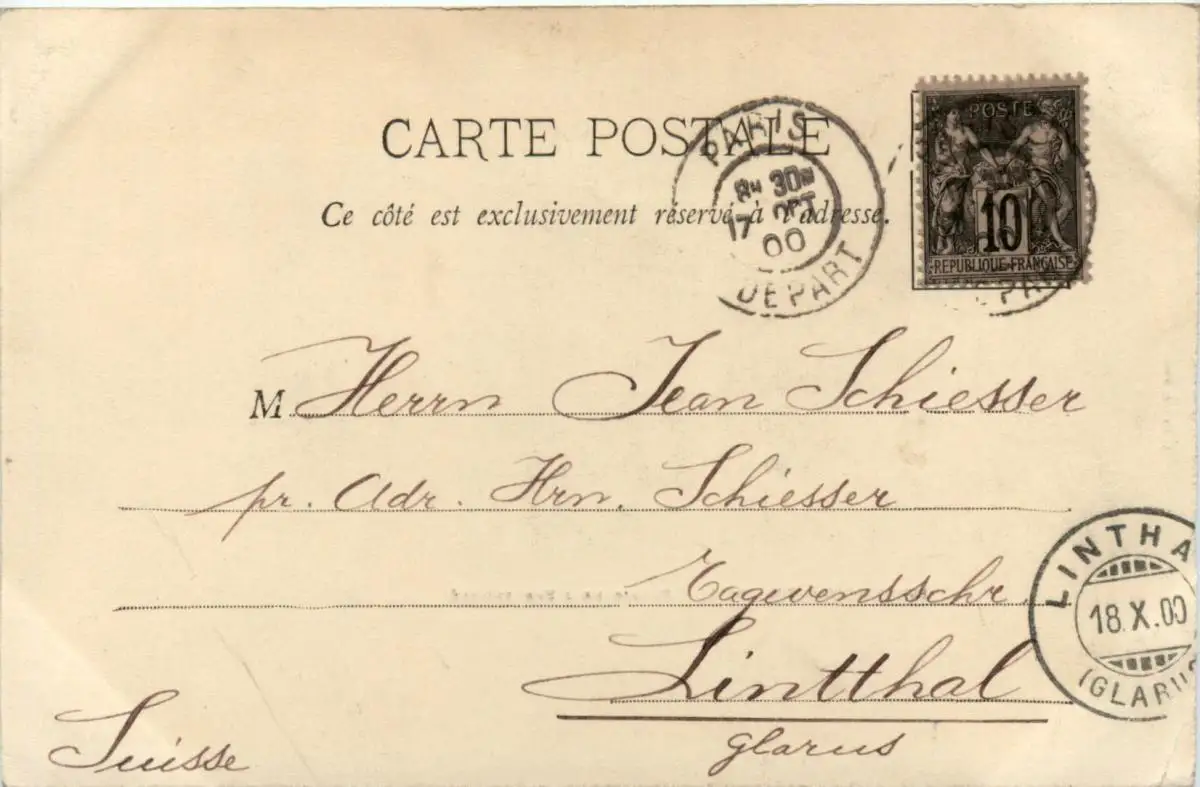 CARTE POSTALE
Ce côté est exclusivement réservé à l'adresse.
PARIS
8H 30M
17 OCT
00
DEPART
POSTE
10
REPUBLIQUE FRANÇAISE
M Herrn Jean Schiesser
pr. Adr. Hrn. Schiesser
Tagwensschr.
Lintthal
glarus
Suisse
LINTHA
18.X.00
(GLARUS